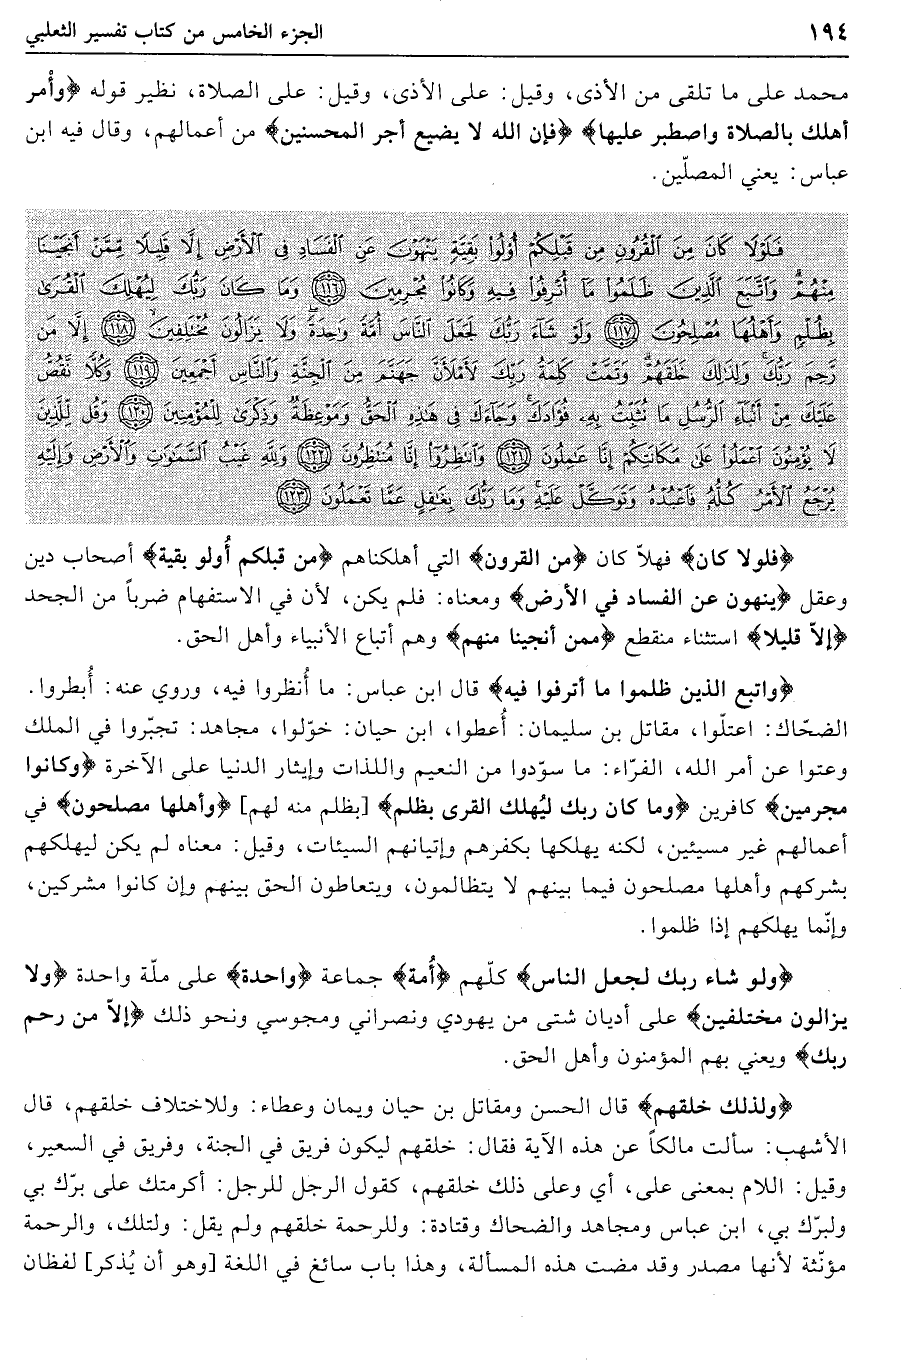 ١٩٤ الجزء الخامس من كتاب تفسير الثعلبي
محمد على ما تلقى من الأذى، وقيل: على الأذى، وقيل: على الصلاة، نظير قوله ﴿وأُمر
أهلك بالصلاة واصطبر عليها﴾ ﴿فإن الله لا يضيع أجر المحسنين﴾ من أعمالهم، وقال فيه ابن
عباس: يعني المصلّين.
فَلَوْلَا كَانَ مِنَ الْقُرُونِ مِن قَبْلِكُمْ أُوْلُوا بَقِيَّةٍ يَنْهَوْنَ عَنِ الْفَسَادِ فِي الْأَرْضِ إِلَّا قَلِيلًا مِّمَّنْ أَنجَيْنَا
مِنْهُمْ وَاتَّبَعَ الَّذِينَ ظَلَمُوا مَا أُتْرِفُوا فِيهِ وَكَانُوا مُجْرِمِينَ ﴿١١٦﴾ وَمَا كَانَ رَبُّكَ لِيُهْلِكَ الْقُرَى
بِظُلْمٍ وَأَهْلُهَا مُصْلِحُونَ ﴿١١٧﴾ وَلَوْ شَاءَ رَبُّكَ لَجَعَلَ النَّاسَ أُمَّةً وَاحِدَةً وَلَا يَزَالُونَ مُخْتَلِفِينَ ﴿١١٨﴾ إِلَّا مَن
رَّحِمَ رَبُّكَ وَلِذَلِكَ خَلَقَهُمْ وَتَمَّتْ كَلِمَةُ رَبِّكَ لَأَمْلَأَنَّ جَهَنَّمَ مِنَ الْجِنَّةِ وَالنَّاسِ أَجْمَعِينَ ﴿١١٩﴾ وَكُلًّا نَّقُصُّ
عَلَيْكَ مِنْ أَنبَاءِ الرُّسُلِ مَا نُثَبِّتُ بِهِ فُؤَادَكَ وَجَاءَكَ فِي هَذِهِ الْحَقُّ وَمَوْعِظَةٌ وَذِكْرَى لِلْمُؤْمِنِينَ ﴿١٢٠﴾ وَقُل لِّلَّذِينَ
لَا يُؤْمِنُونَ اعْمَلُوا عَلَى مَكَانَتِكُمْ إِنَّا عَامِلُونَ ﴿١٢١﴾ وَانتَظِرُوا إِنَّا مُنتَظِرُونَ ﴿١٢٢﴾ وَلِلَّهِ غَيْبُ السَّمَاوَاتِ وَالْأَرْضِ وَإِلَيْهِ
يُرْجَعُ الْأَمْرُ كُلُّهُ فَاعْبُدْهُ وَتَوَكَّلْ عَلَيْهِ وَمَا رَبُّكَ بِغَافِلٍ عَمَّا تَعْمَلُونَ ﴿١٢٣﴾
﴿فلولا كان﴾ فهلاّ كان ﴿من القرون﴾ التي أهلكناهم ﴿من قبلكم أُولو بقية﴾ أصحاب دين
وعقل ﴿ينهون عن الفساد في الأرض﴾ ومعناه: فلم يكن، لأن في الاستفهام ضرباً من الجحد
﴿إلاّ قليلا﴾ استثناء منقطع ﴿ممن أنجينا منهم﴾ وهم أتباع الأنبياء وأهل الحق.
﴿واتبع الذين ظلموا ما أترفوا فيه﴾ قال ابن عباس: ما أُنظروا فيه، وروي عنه: أُبطروا.
الضحّاك: اعتلّوا، مقاتل بن سليمان: أُعطوا، ابن حيان: خوّلوا، مجاهد: تجبّروا في الملك
وعتوا عن أمر الله، الفرّاء: ما سوّدوا من النعيم واللذات وإيثار الدنيا على الآخرة ﴿وكانوا
مجرمين﴾ كافرين ﴿وما كان ربك ليُهلك القرى بظلم﴾ [بظلم منه لهم] ﴿وأهلها مصلحون﴾ في
أعمالهم غير مسيئين، لكنه يهلكها بكفرهم وإتيانهم السيئات، وقيل: معناه لم يكن ليهلكهم
بشركهم وأهلها مصلحون فيما بينهم لا يتظالمون، ويتعاطون الحق بينهم وإن كانوا مشركين،
وإنّما يهلكهم إذا ظلموا.
﴿ولو شاء ربك لجعل الناس﴾ كلّهم ﴿أُمة﴾ جماعة ﴿واحدة﴾ على ملّة واحدة ﴿ولا
يزالون مختلفين﴾ على أديان شتى من يهودي ونصراني ومجوسي ونحو ذلك ﴿إلاّ من رحم
ربك﴾ ويعني بهم المؤمنون وأهل الحق.
﴿ولذلك خلقهم﴾ قال الحسن ومقاتل بن حيان ويمان وعطاء: وللاختلاف خلقهم، قال
الأشهب: سألت مالكاً عن هذه الآية فقال: خلقهم ليكون فريق في الجنة، وفريق في السعير،
وقيل: اللام بمعنى على، أي وعلى ذلك خلقهم، كقول الرجل للرجل: أكرمتك على برّك بي
ولبرّك بي، ابن عباس ومجاهد والضحاك وقتادة: وللرحمة خلقهم ولم يقل: ولتلك، والرحمة
مؤنّثة لأنها مصدر وقد مضت هذه المسألة، وهذا باب سائغ في اللغة [وهو أن يُذكر] لفظان